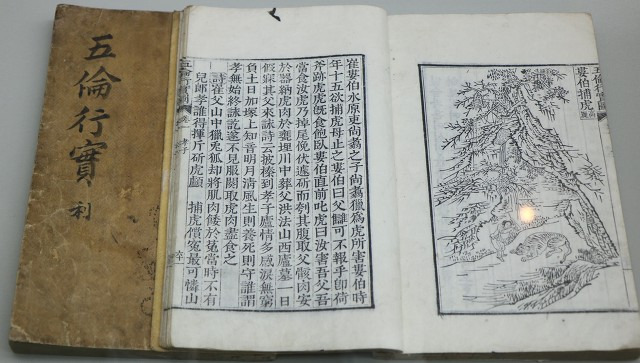 五倫行實
利
五倫行實圖
婁伯捕虎
高麗
崔婁伯水原吏尙翥之子尙翥獵爲虎所害婁伯時
年十五欲捕虎母止之婁伯曰父讎可不報乎卽荷
斧跡虎虎旣食飽臥婁伯直前叱虎曰汝害吾父吾
當食汝虎乃掉尾俛伏遽斫而刳其腹取父骸肉安
於器納虎肉於甕埋川中葬父洪法山西廬墓一日
假寐其父來詠詩云披榛到孝子廬情多感淚無窮
負土日加塚上知音明月淸風生則養死則守誰謂
孝無始終詠訖遂不見服闋取虎肉盡食之
詩 崔父山中獵兎狐却將肌肉餧於菟當時不有
兒郞孝誰得揮斤斫虎顱 捕虎償冤最可憐山
五倫行實圖 卷一 孝子